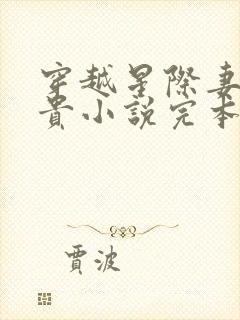 穿越星際妻
貴小說完本
賈波